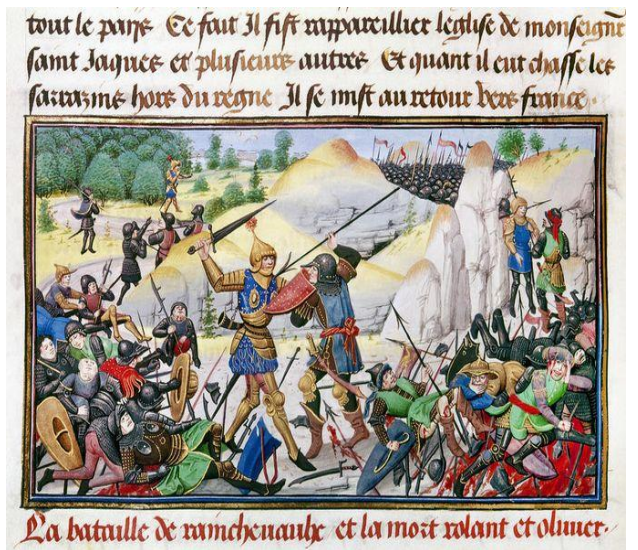 tout le pays Ce fait Il fist rappareillier leglise de monseignr̄
saint Jaques et plusieurs autres Et quant il eut chasse les
sarrazins hors du regne Il se mist au retour vers france.
La bataille de raincheuaulx et la mort rolant et oliuier.